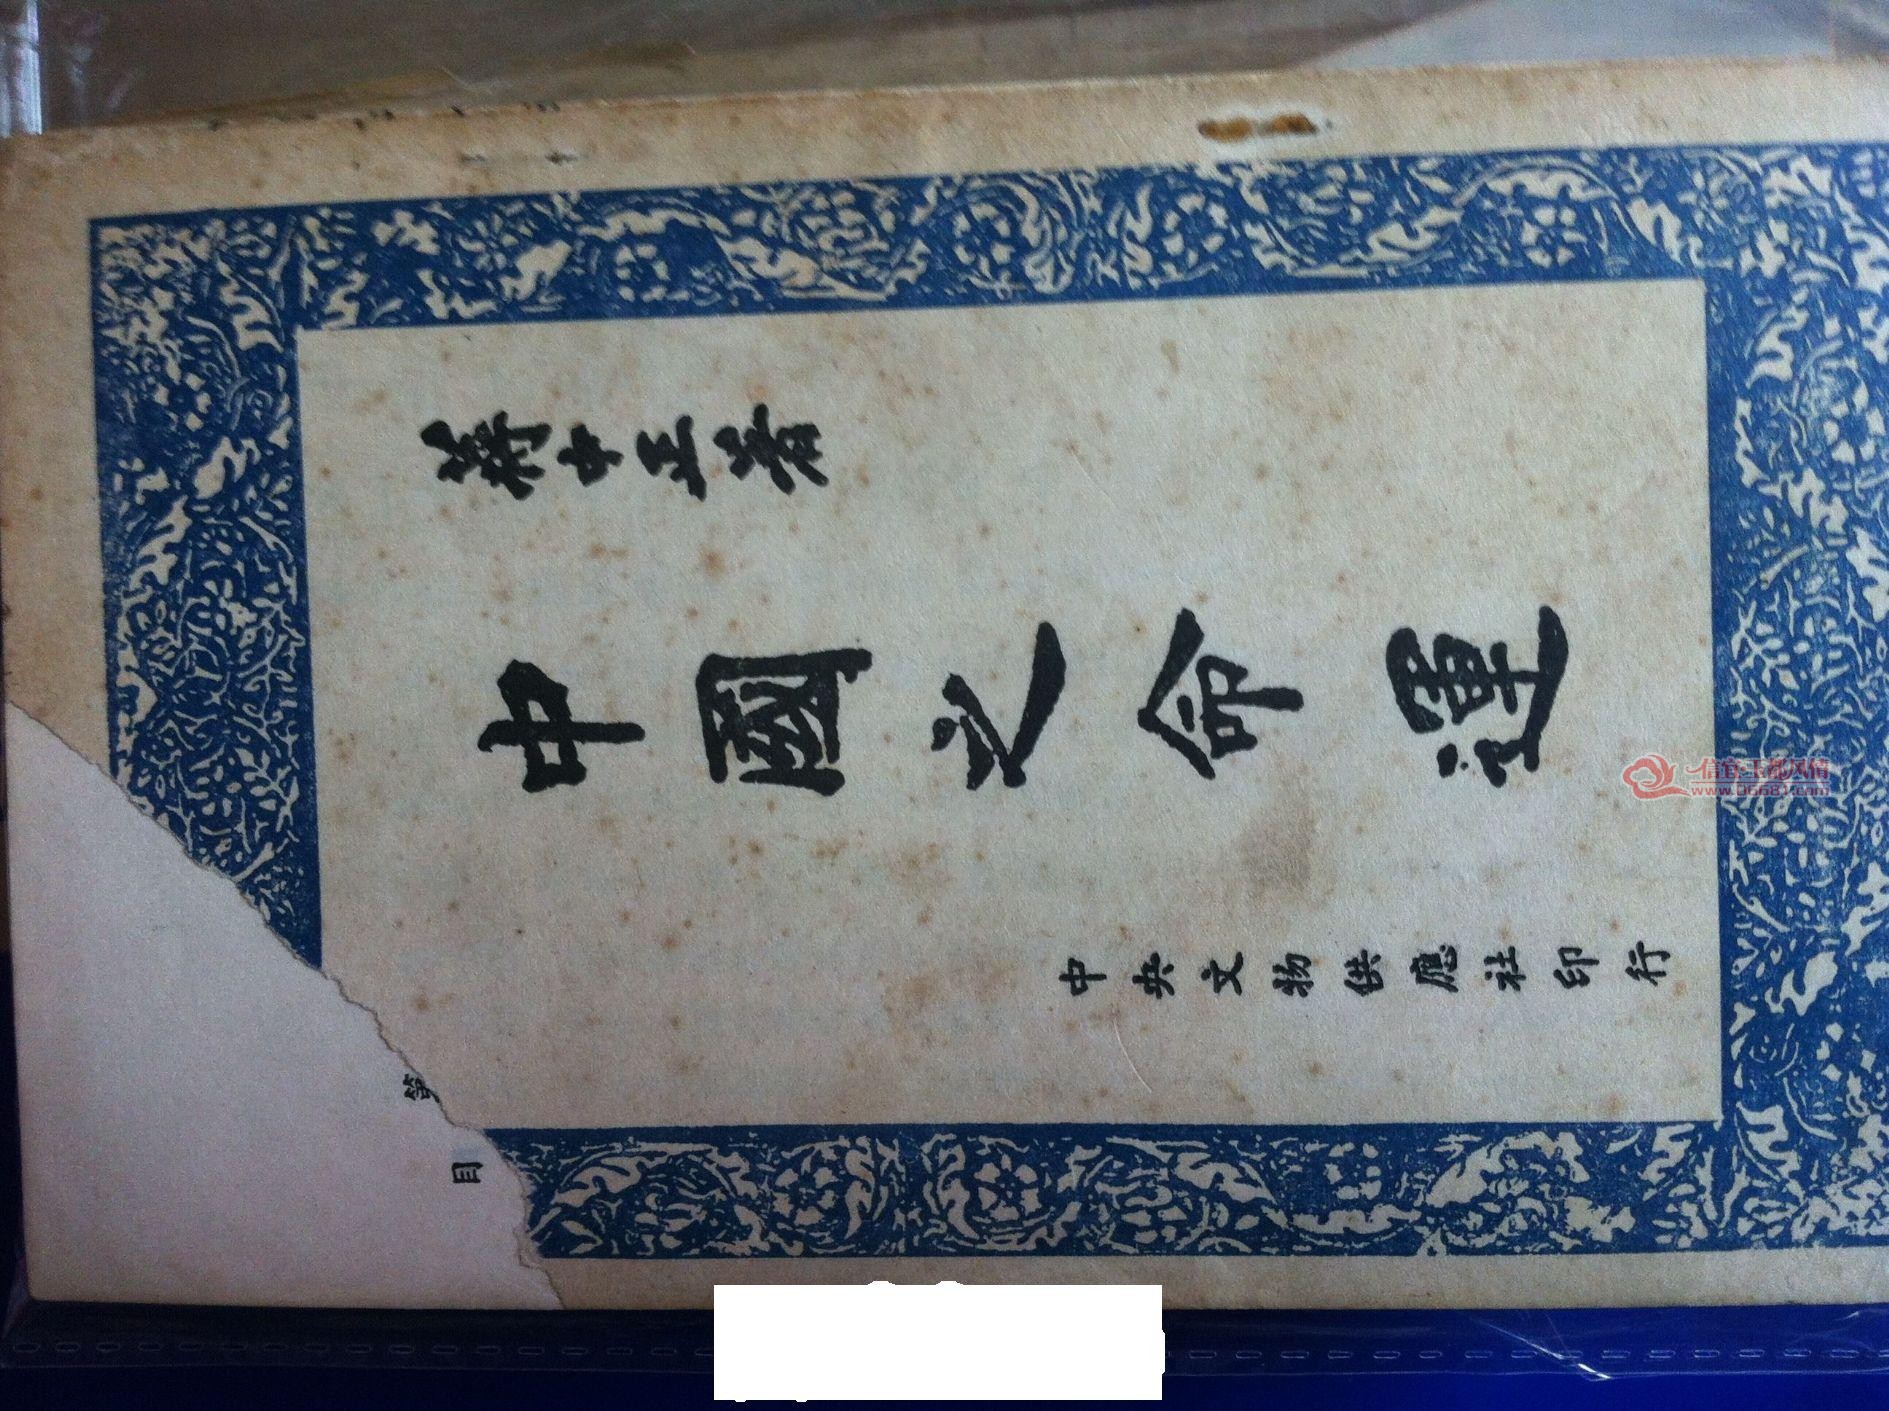 蔣中正著
中國之命運
中央文物供應社印行
第
目
信宜玉都风情
www.06681.com